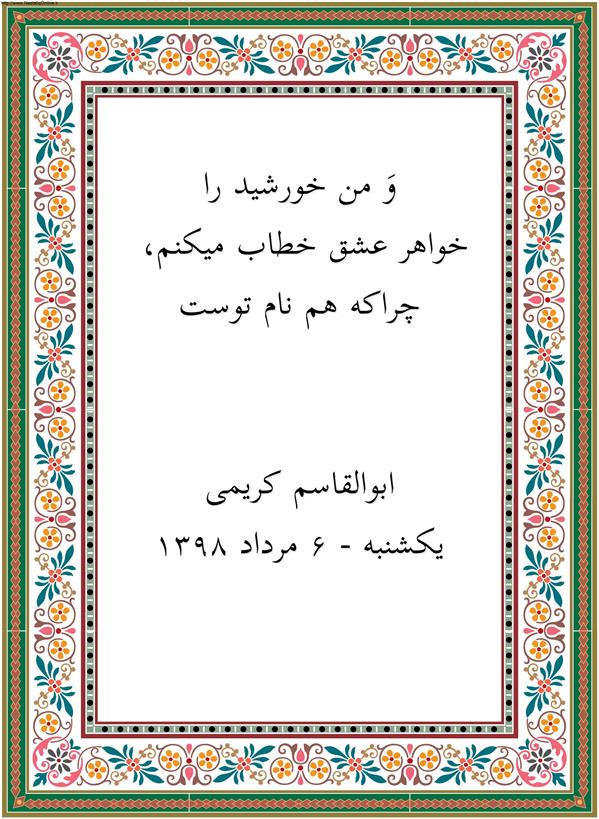 http://www.NastaliqOnline.ir
وَ من خورشید را
خواهر عشق خطاب میکنم،
چراکه هم نام توست
ابوالقاسم کریمی
یکشنبه - ۶ مرداد ۱۳۹۸